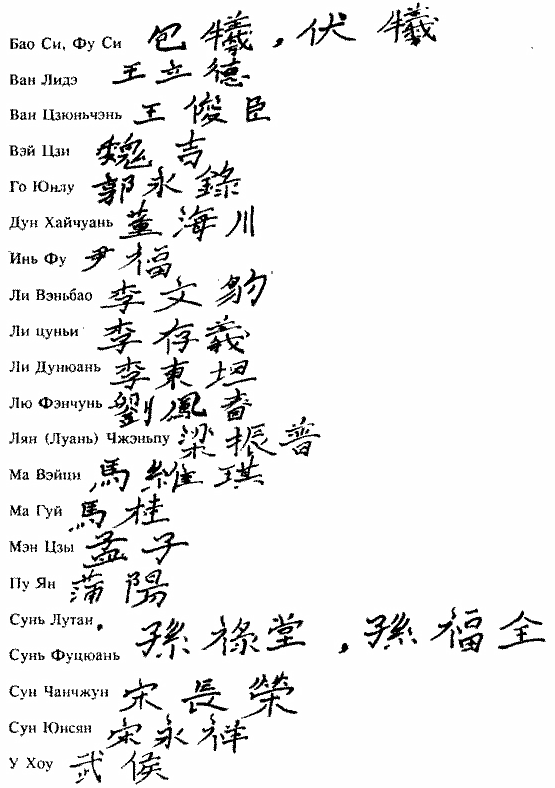 Бао Си, Фу Си 包犧，伏犧
Ван Лидэ 王立德
Ван Цзюньчэнь 王俊臣
Вэй Цзи 魏吉
Го Юнлу 郭永錄
Дун Хайчуань 董海川
Инь Фу 尹福
Ли Вэньбао 李文豹
Ли цуньи 李存義
Ли Дунюань 李東垣
Лю Фэнчунь 劉鳳春
Лян (Луань) Чжэньпу 梁振普
Ма Вэйци 馬維琪
Ма Гуй 馬桂
Мэн Цзы 孟子
Пу Ян 蒲陽
Сунь Лутан, 孫祿堂，孫福全
Сунь Фуцюань
Сун Чанчжун 宋長榮
Сун Юнсян 宋永祥
У Хоу 武侯